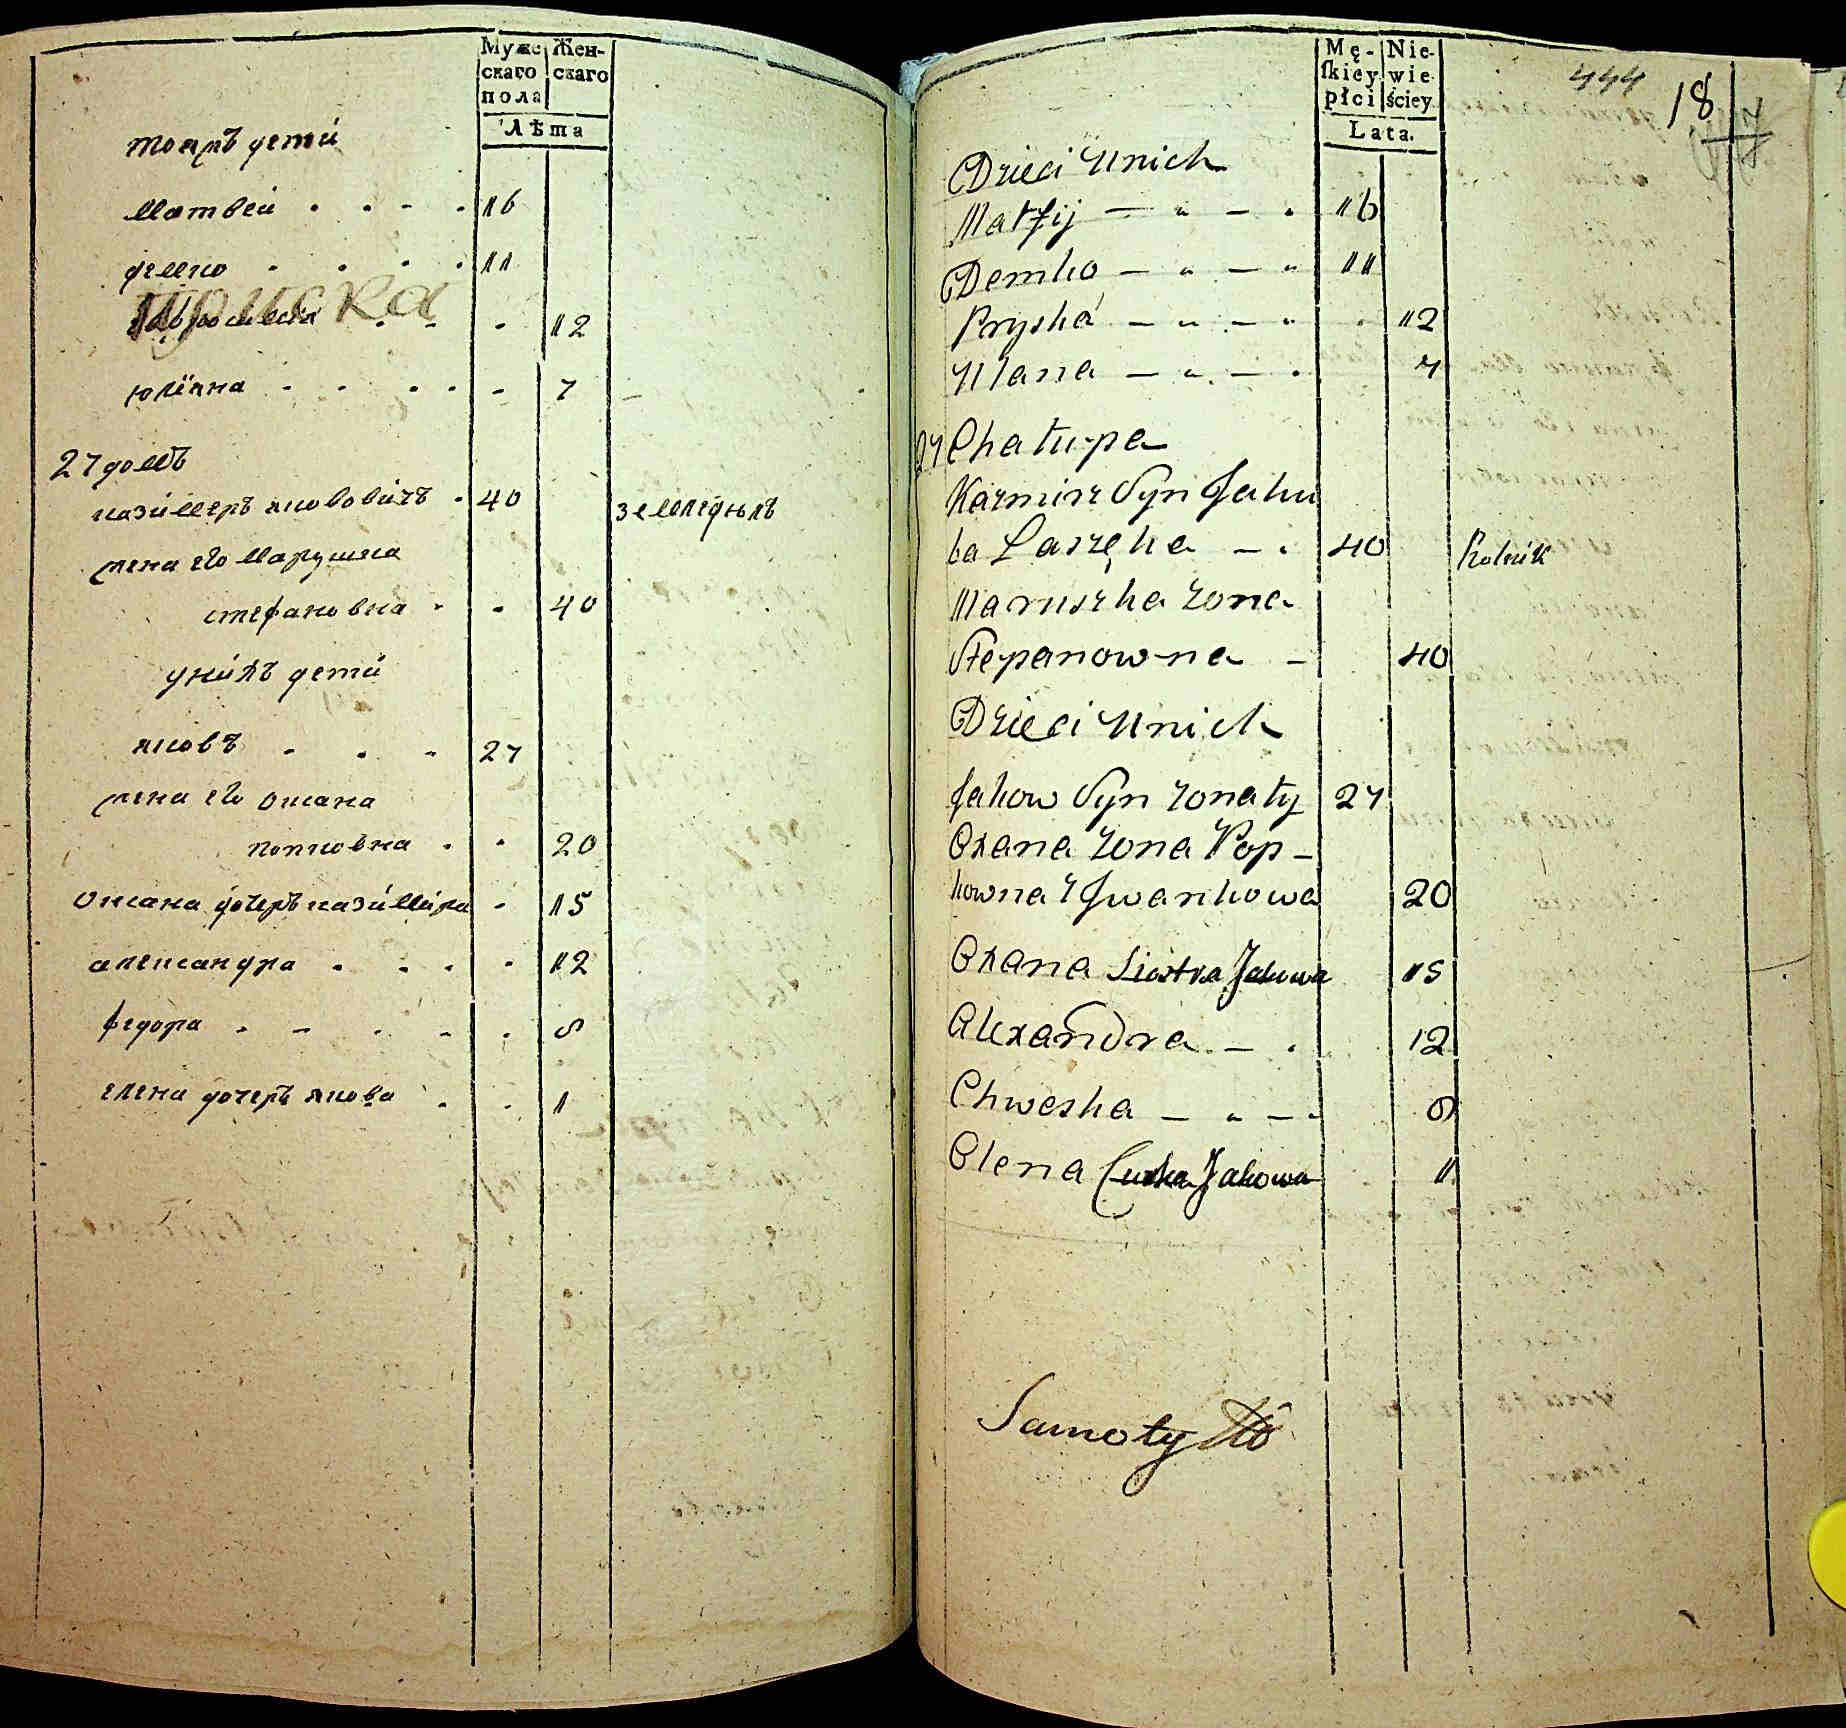 Муже Жен-
скаго скаго
пола
Лѣта
тоаръ дети
Матвей 16
демко 11
Приска
12
юлїяна 7
27 домъ
казимеръ яковович 40 земледѣлъ
жена его Марушка
стефановна 40
унихъ дети
яковъ 27
жена его оксана
попковна 20
оксана дочеръ казимира 15
александра 12
федора 9
елена дочеръ якова 1
Mę- Nie-
ſkiey wie
płci ściey
Lata.
444 18
Dzieci Unich
Matfij 16
Demko 11
Pryska 12
Ulana 7
27 Chałupa
Kazmirz Syn Jaku
ba Laszęka 40 Rolnik
Maruszka zona
Stepanowna 40
Dzieci Unich
Jakow Syn zonaty 27
Oxana zona Pop-
kowna z Jwankowa 20
Oxana Siostra Jakowa 15
Alexandra 12
Chweska 9
Olena Curka Jakowa 1
Samoty